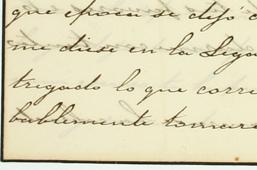 que epoca se dijó c
me dice en la Lega
tregado lo que corri
bablemente tomare